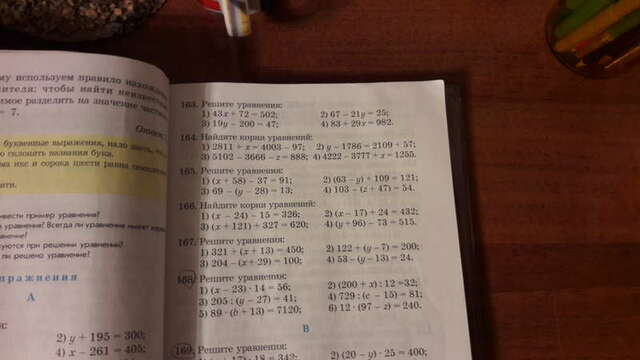 му используем правило нахождения
ителя: чтобы найти неизвестн
имое разделить на значение частно
= 7.
буквенные выражения, надо
о склонять названия букв.
ма икс и сорока шести равна семидесяти
ити.
ивести пример уравнения?
уравнения? Всегда ли уравнение имеет
авнение?
зуются при решении уравнений?
ли решено уравнение?
пражнения
А
2) y + 195 = 300;
4) x − 261 = 405;
163. Решите уравнения:
1) 43x + 72 = 502; 2) 67 − 21y = 25;
3) 19y − 200 = 47; 4) 83 + 29x = 982.
164. Найдите корни уравнений:
1) 2811 + x = 4003 − 97; 2) y − 1786 = 2109 + 57;
3) 5102 − 3666 − z = 888; 4) 4222 − 3777 + x = 1255.
165. Решите уравнения:
1) (x + 58) − 37 = 91; 2) (63 − y) + 109 = 121;
3) 69 − (y − 28) = 13; 4) 103 − (z + 47) = 54.
166. Найдите корни уравнений:
1) (x − 24) − 15 = 326; 2) (x − 17) + 24 = 432;
3) (x + 121) + 327 = 620; 4) (y + 96) − 73 = 515.
167. Решите уравнения:
1) 321 + (x + 13) = 450; 2) 122 + (y − 7) = 200;
3) 204 − (x + 29) = 100; 4) 53 − (y − 13) = 24.
168. Решите уравнения:
1) (x − 23) · 14 = 56; 2) (200 + x) : 12 = 32;
3) 205 : (y − 27) = 41; 4) 729 : (c − 15) = 81;
5) 89 · (b + 13) = 7120; 6) 12 · (97 − z) = 240.
В
169. Решите уравнения:
17) · 18 = 342; 2) (20 − y) · 25 = 400;